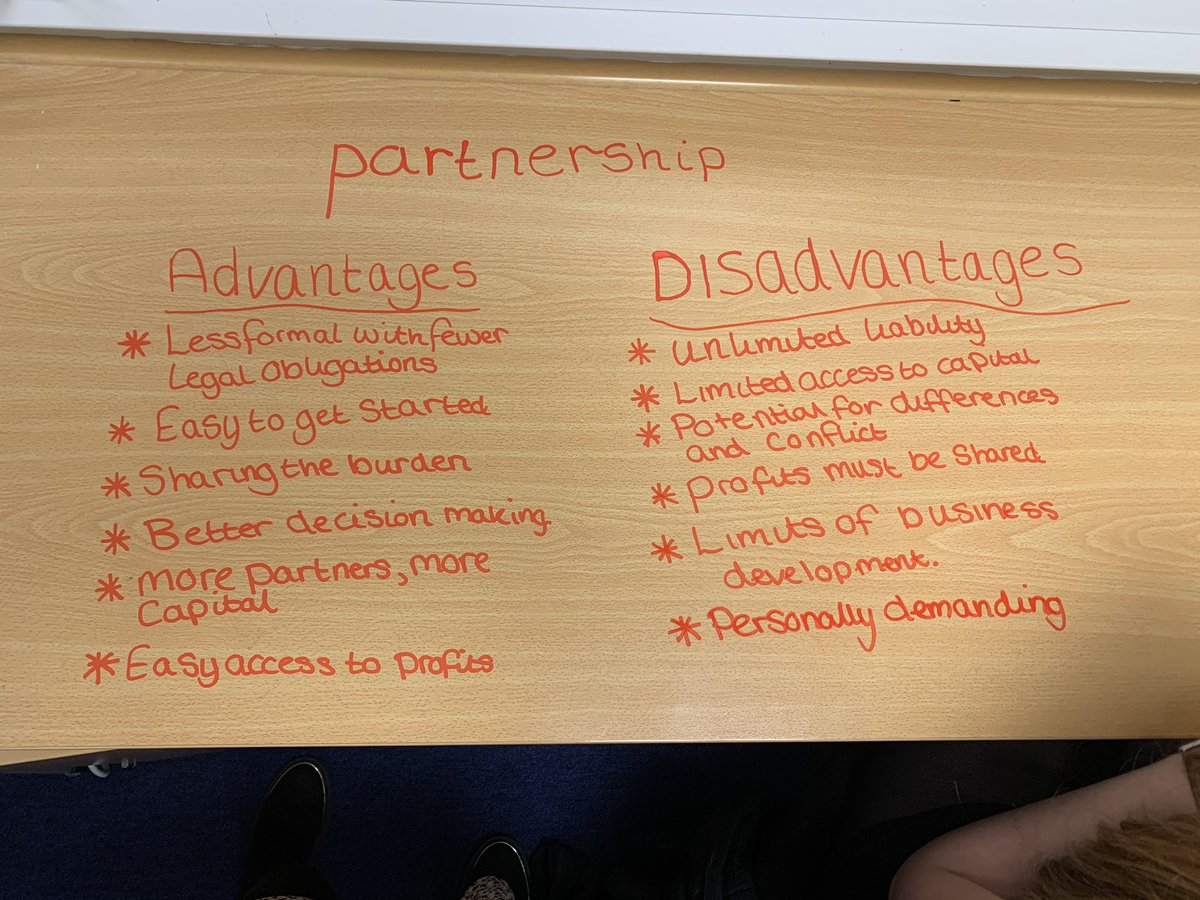 partnership
Advantages
* Less formal with fewer
Legal obligations
* Easy to get started
* Sharing the burden
* Better decision making
* more partners, more
Capital
* Easy access to profits
Disadvantages
* unlimited liability
* Limited access to capital
* Potential for differences
and conflict
* profits must be shared
* Limits of business
development.
* Personally demanding